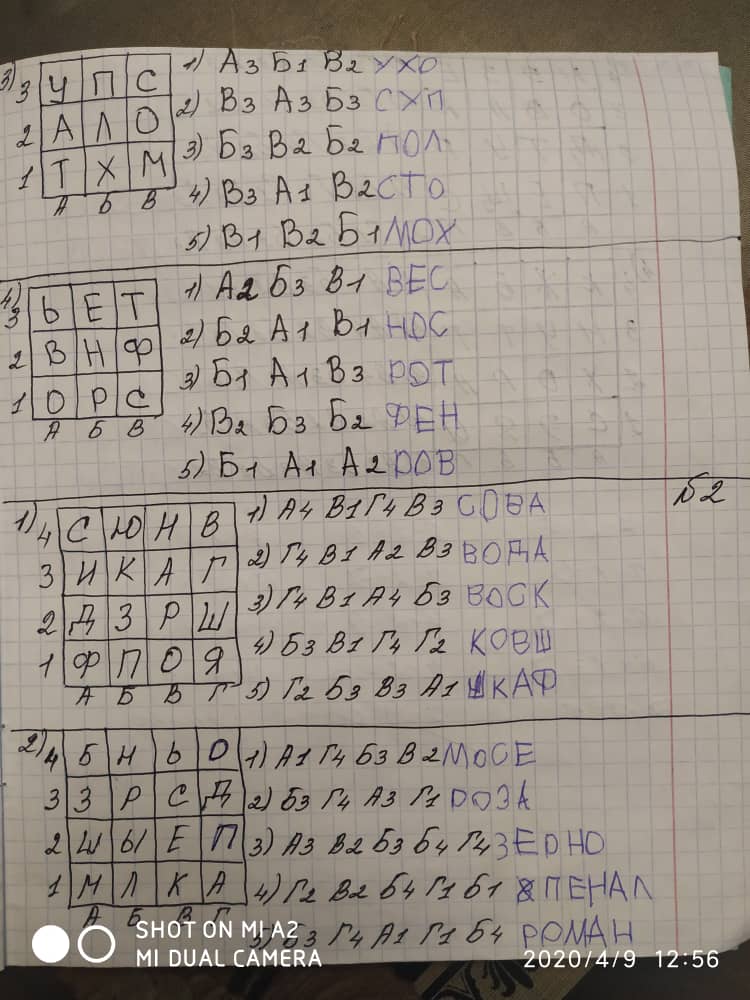 3) 3 У П С 1) А3 Б1 В2 УХО
2 А Л О 2) В3 А3 Б3 СУП
1 Т Х М 3) Б3 В2 Б2 ПОЛ
А Б В 4) В3 А1 В2 СТО
5) В1 В2 Б1 МОХ
4) 3 Ь Е Т 1) А2 Б3 В1 ВЕС
2 В Н Ф 2) Б2 А1 В1 НОС
1 О Р С 3) Б1 А1 В3 РОТ
А Б В 4) В2 Б3 Б2 ФЕН
5) Б1 А1 А2 РОВ
№2
1) 4 С Ю Н В 1) А4 В1 Г4 В3 СОВА
3 И К А Г 2) Г4 В1 А2 В3 ВОДА
2 Д З Р Ш 3) Г4 В1 А4 Б3 ВОСК
1 Ф П О Я 4) Б3 В1 Г4 Г2 КОВШ
А Б В Г 5) Г2 Б3 В3 А1 ШКАФ
2) 4 Б Н Ь О 1) А1 Г4 Б3 В2 МОСЕ
3 З Р С Д 2) Б3 Г4 А3 Г1 РОЗА
2 Ш Ы Е П 3) А3 В2 Б3 Б4 Г4 ЗЕРНО
1 М Л К А 4) Г2 В2 Б4 Г1 Б1 ПЕНАЛ
А Б В Г 5) Б3 Г4 А1 Г1 Б4 РОМАН
SHOT ON MI A2
MI DUAL CAMERA
2020/4/9 12:56